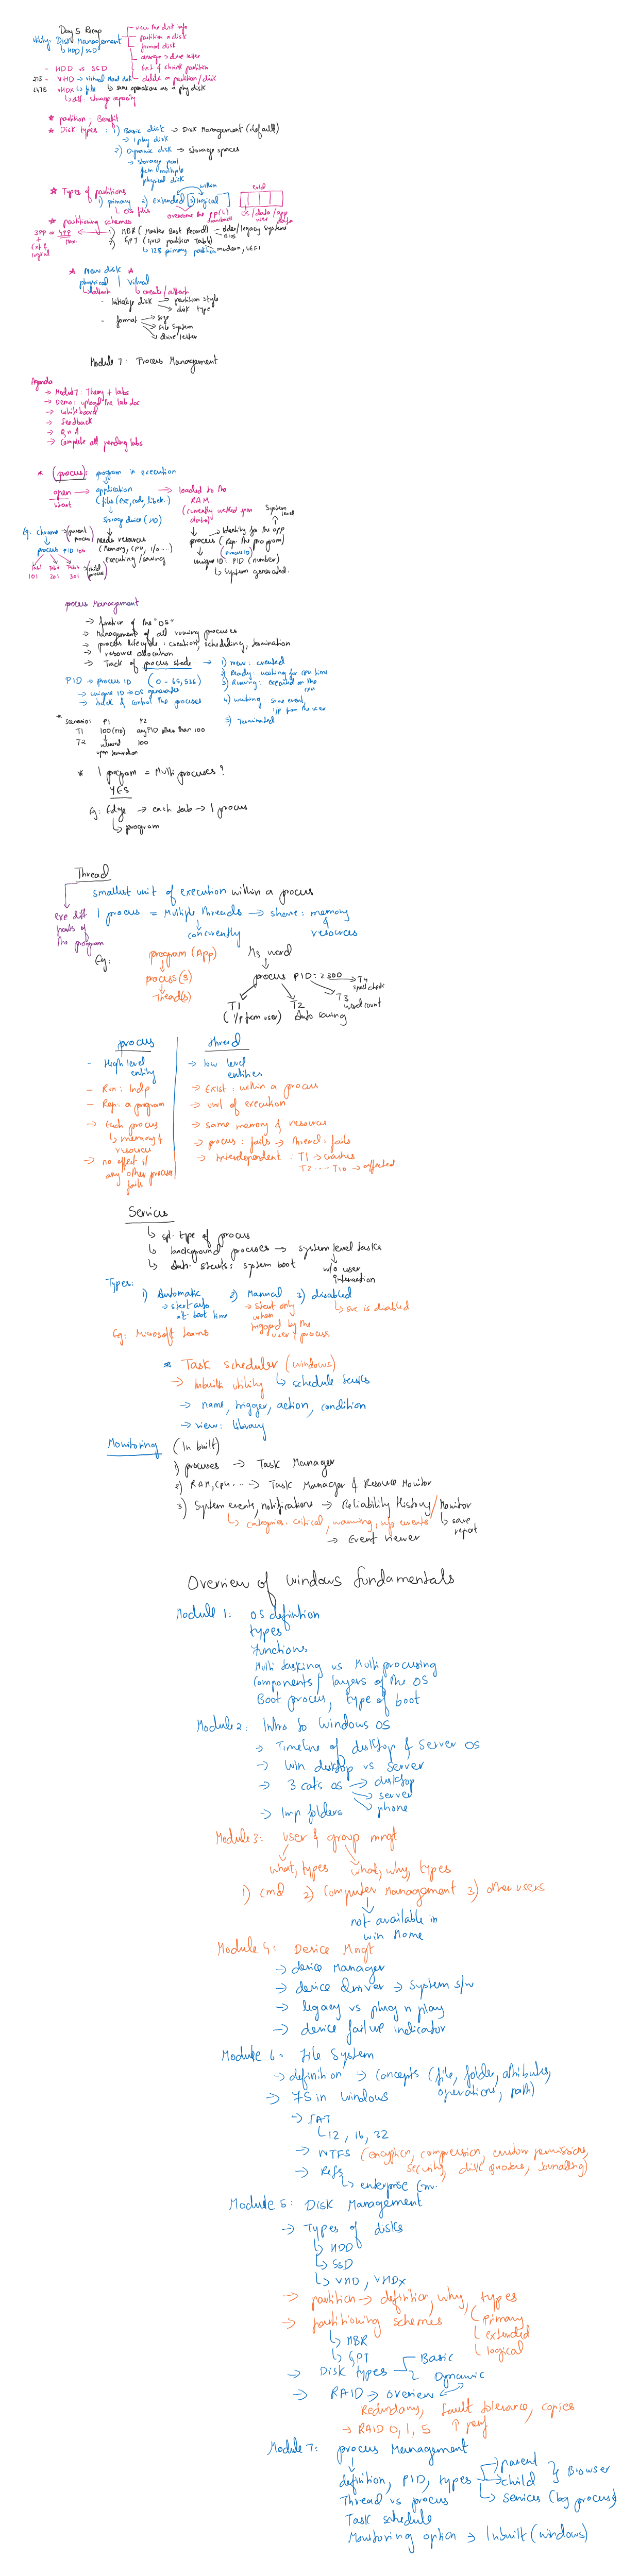 Day 5 Recap
Utility: Disk Management
↳ HDD/SSD
→ view the disk info
→ partition a disk
→ format disk
→ assign → drive letter
→ Ext & shrink partition
→ delete a partition/disk
- HDD vs SSD
2TB - VHD → virtual hard disk
64TB VHDX ↳ file ↳ same operations as a phy disk
↳ diff: storage capacity
* partition; Benefit
* Disk types: 1) Basic disk → Disk Management (default)
→ 1 phy disk
2) Dynamic disk → storage spaces
→ storage pool
from multiple
physical disk
* Types of partitions
within
1) primary 2) extended [3) logical]
↳ OS files
overcome the pp(4) drawback
OS/data/app
user data
* partitioning schemes
3PP = 4PP max.
+
Ext &
logical
1) MBR (Master Boot Record) - older/legacy systems
BIOS
2) GPT (GUID partition Table)
↳ 128 primary partition modern, UEFI
* New disk *
physical | virtual
↳ attach ↳ create/attach
- Initialize disk → partition style
→ disk type
- format → size
→ File System
→ drive letter
Module 7: Process Management
Agenda
→ Module 7: Theory + labs
→ Demo: upload the lab doc
→ whiteboard
→ feedback
→ Q n A
→ Complete all pending labs
* (process): program in execution
open → application → loaded to the
start (files (exe, code, lib etc..) RAM
(currently worked upon
data)
storage device (HD)
System
level
Eg: chrome → (parent
process) needs resources
(Memory, CPU, I/O ....)
executing/running
process → Identity for the app
(Rep: the program)
process ID
unique ID: PID (number)
↳ System generated.
process PID 100
Tab1 Tab2 Tab3 → (child
101 201 301 process)
process Management
→ function of the "OS"
→ Management of all running processes
→ process lifecycle: creation, scheduling, termination
→ resource allocation
→ Track of process state → 1) new: created
2) Ready: waiting for CPU time
3) Running: executed on the
CPU
4) waiting: some event,
i/p from the user
5) Terminated
PID → process ID (0 - 65,536)
→ unique ID → OS generates
→ track & control the processes
* Scenario: P1 P2
T1 100(PID) any PID other than 100
T2 released 100
upon termination
* 1 program = Multi processes?
YES
Eg: Edge → each tab → 1 process
↳ program
Thread
smallest unit of execution within a process
exe diff
parts of
the program
1 process = Multiple Threads → share: memory
&
resources
concurrently
Eg:
program (App)
process(s)
Thread(s)
Ms word
process PID: 2300 → T4
spell check
T1 T2 T3
(i/p from user) Auto saving word count
process
- High level
entity
- Run: Indp
- Rep: a program
→ Each process
↳ memory &
resources
→ no effect if
any other process
fails
thread
→ low level
entities
→ Exist: within a process
→ unit of execution
→ same memory & resources
→ process: fails → thread: fails
→ Interdependent: T1 → crashes
T2 .... T10 → affected
Services
↳ spl. type of process
↳ background processes → system level tasks
↳ Auto. starts: system boot w/o user
interaction
Types:
1) Automatic 2) Manual 3) disabled
→ start auto
at boot time
→ start only
when
triggered by the
user & process
↳ svc is disabled
Eg: Microsoft teams
* Task scheduler (windows)
→ Inbuilt utility ↳ schedule tasks
→ name, trigger, action, condition
→ view: library
Monitoring (In built)
1) processes → Task Manager
2) RAM, CPU ... → Task Manager & Resource Monitor
3) System events, notifications → Reliability History/Monitor
↳ categories: critical, warning, info events ↳ save
report
→ Event viewer
Overview of Windows fundamentals
Module 1: OS definition
types
Functions
Multi tasking vs Multi processing
Components/layers of the OS
Boot process, type of boot
Module 2: Intro to Windows OS
→ Timeline of desktop & Server OS
→ Win desktop vs server
→ 3 cats OS → desktop
→ server
→ phone
→ Imp folders
Module 3: user & group mngt
what, types what, why, types
1) cmd 2) Computer Management 3) other users
not available in
win Home
Module 4: Device Mngt
→ device Manager
→ device driver → System s/w
→ legacy vs plug n play
→ device failure indicator
Module 6: File System
→ definition → concepts (file, folder, attributes,
operations, path)
→ FS in windows
→ FAT
↳ 12, 16, 32
→ NTFS (encryption, compression, custom permissions,
security, disk quotas, journalling)
→ Refs
↳ enterprise Env.
Module 5: Disk Management
→ Types of disks
↳ HDD
↳ SSD
↳ VHD, VHDX
→ partition → definition, why, types
→ partitioning schemes
↳ MBR
↳ GPT
primary
extended
logical
→ Disk types Basic
Dynamic
→ RAID → overview
Redundancy, fault tolerance, copies
→ RAID 0, 1, 5 ↑ perf
Module 7: process Management
definition, PID, types → parent
→ child } Browser
↳ services (bg process)
Thread vs process
Task schedule
Monitoring option → Inbuilt (windows)